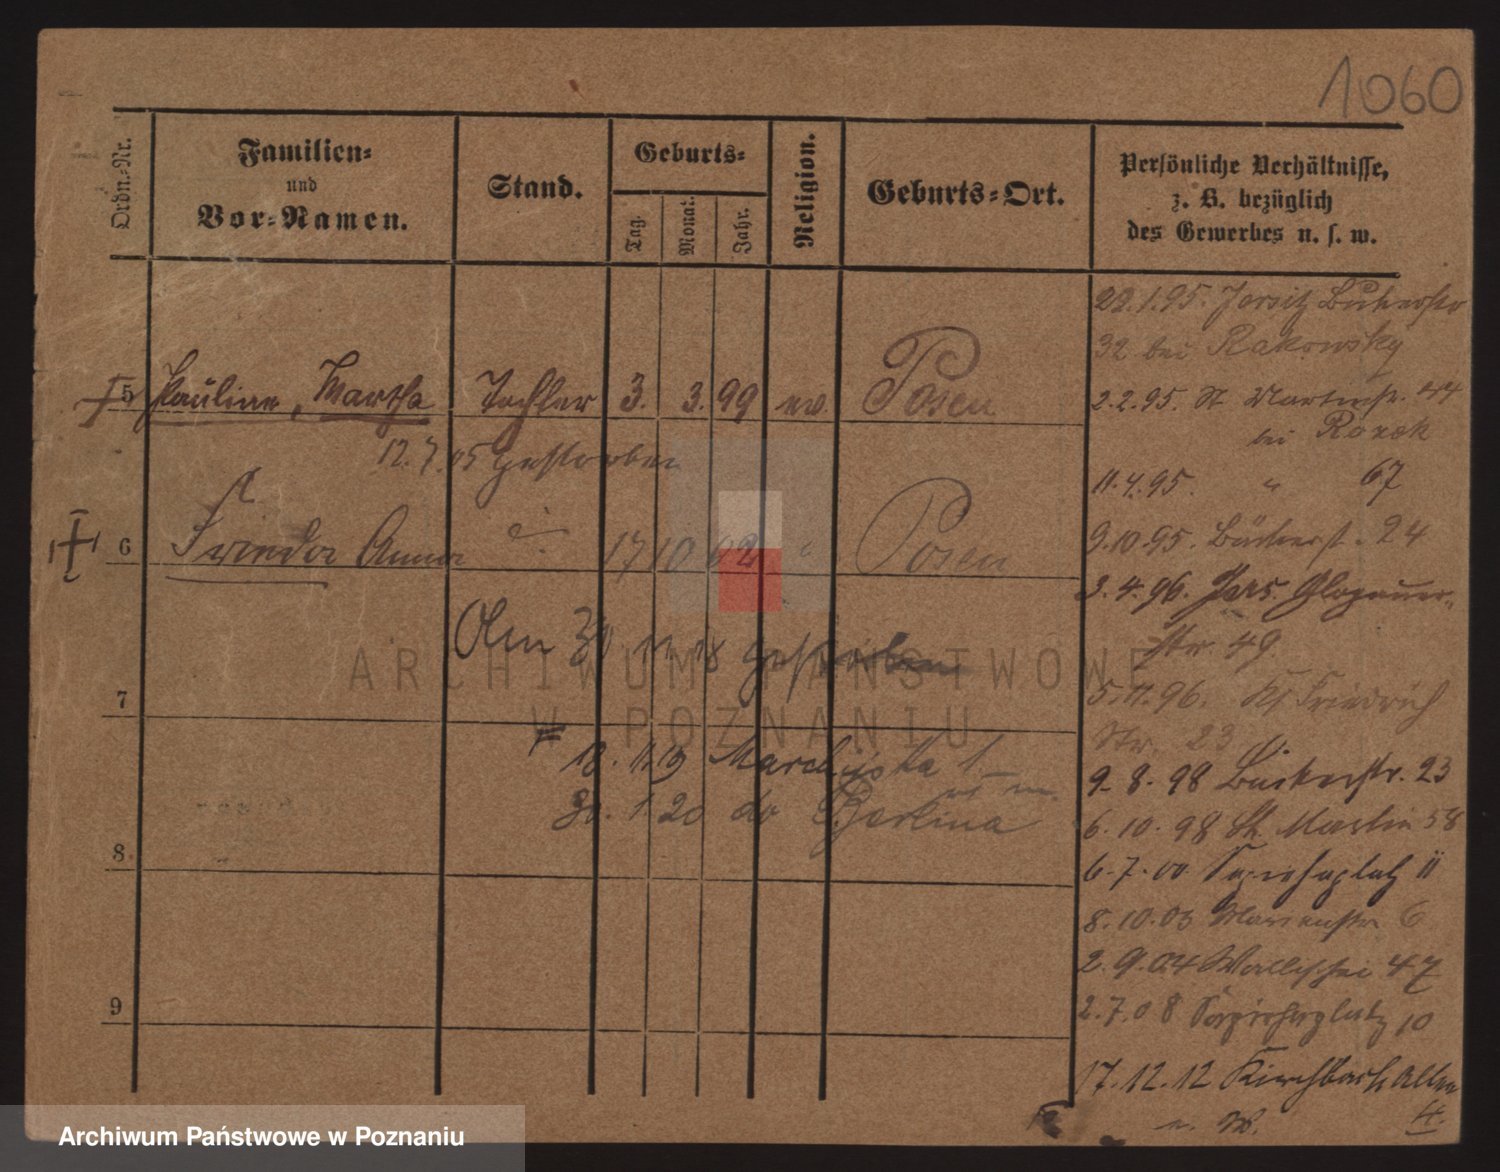 1060
Ordn.-Nr.
Familien-
und
Vor-Namen.
Stand.
Geburts-
Tag.
Monat.
Jahr.
Religion.
Geburts-Ort.
Persönliche Verhältnisse,
z. B. bezüglich
des Gewerbes u. s. w.
5 Pauline, Martha Tochter 3. 3. 99 ev. Posen
12.7.05 gestorben
6 Frieda Anna 17 10 02 Posen
Am 30 11 18 gestorben
7
18. 11. 19
30. 1. 20 do Berlina
8
9
22.1.95. Jersitz Bukerstr
32 bei Rakowsky
2.2.95. St Martinstr. 44
bei
11.4.95. " 67
9.10.95. Bäckerst. 24
3.4.96. Jers. Glogauer-
str. 49
5.11.96. Friedrich
Str. 23
9.8.98 Bäckerstr. 23
6.10.98 St. Martin 58
6.7.00 Sapiehaplatz 11
8.10.03 Marienstr 6
2.9.04 Wallischei 47
2.7.08 Sapiehaplatz 10
17.12.12 Kirchbach Allee
4.
ARCHIWUM PAŃSTWOWE
W POZNANIU
Archiwum Państwowe w Poznaniu